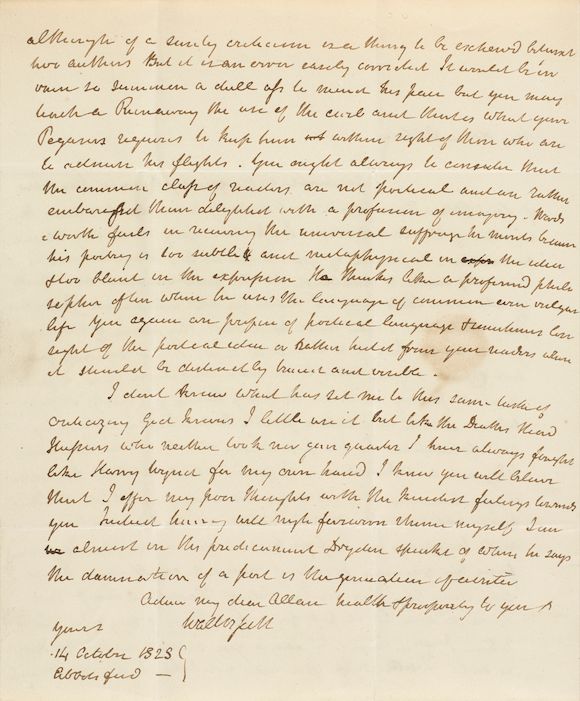 although of a surely criticism is a thing to be eschewed betwixt
two authors But it is an error easily corrected It would be in
vain to summon a dull ass to mend his pace but you may
teach a Runaway the use of the curb and that is what your
Pegasus requires to keep him within sight of those who are
to admire his flights. You ought always to consider that
the common class of readers are not poetical and are rather
embarassed than delighted with a profusion of imagery. Words
worth fails in receiving the universal suffrage he merits because
his poetry is too subtle & and metaphysical in the idea
& too blunt in the expression He thinks like a profound philo
sopher often when he uses the language of common even vulgar
life You again are profuse of poetical language & sometimes lose
sight of the poetical idea or rather hide it from your readers when
it should be distinctly traced and visible.
I dont know what has set me to this same task of
criticizing God knows I little use it but like the Deaths Head
Hussars who neither took nor gave quarter I have always fought
like Harry Wynd for my own hand I know you will believe
that I offer my poor thoughts with the kindest feelings towards
you Indeed having well nigh forsworn rhime myself I am
almost in the predicament Dryden speaks of when he says
the damnation of a poet is the generation of a critic
Adieu my dear Allan health & prosperity to you &
yours Walter Scott
14 October 1828
Abbotsford —